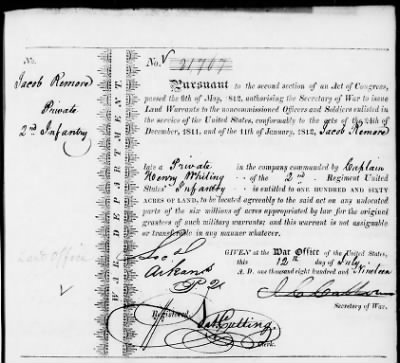 No.
Jacob Remord
Private
2nd Infantry
Land Office
WAR DEPARTMENT.
No. 21767
Pursuant to the second section of an Act of Congress,
passed the 6th of May, 1812, authorising the Secretary of War to issue
Land Warrants to the noncommissioned Officers and Soldiers enlisted in
the service of the United States, conformably to the acts of the 24th of
December, 1811, and of the 11th of January, 1812, Jacob Remord
late a Private in the company commanded by Captain
Henry Whiting of the 2nd Regiment United
States' Infantry is entitled to ONE HUNDRED AND SIXTY
ACRES OF LAND, to be located agreeably to the said act on any unlocated
parts of the six millions of acres appropriated by law for the original
grantees of such military warrants; and this warrant is not assignable
or transferable in any manner whatever.
GIVEN at the War Office of the United States,
this 12th day of July
A. D. one thousand eight hundred and Nineteen
J. C. Calhoun
Secretary of War.
Arkans
Registered
Nat. Cutting
Clerk.